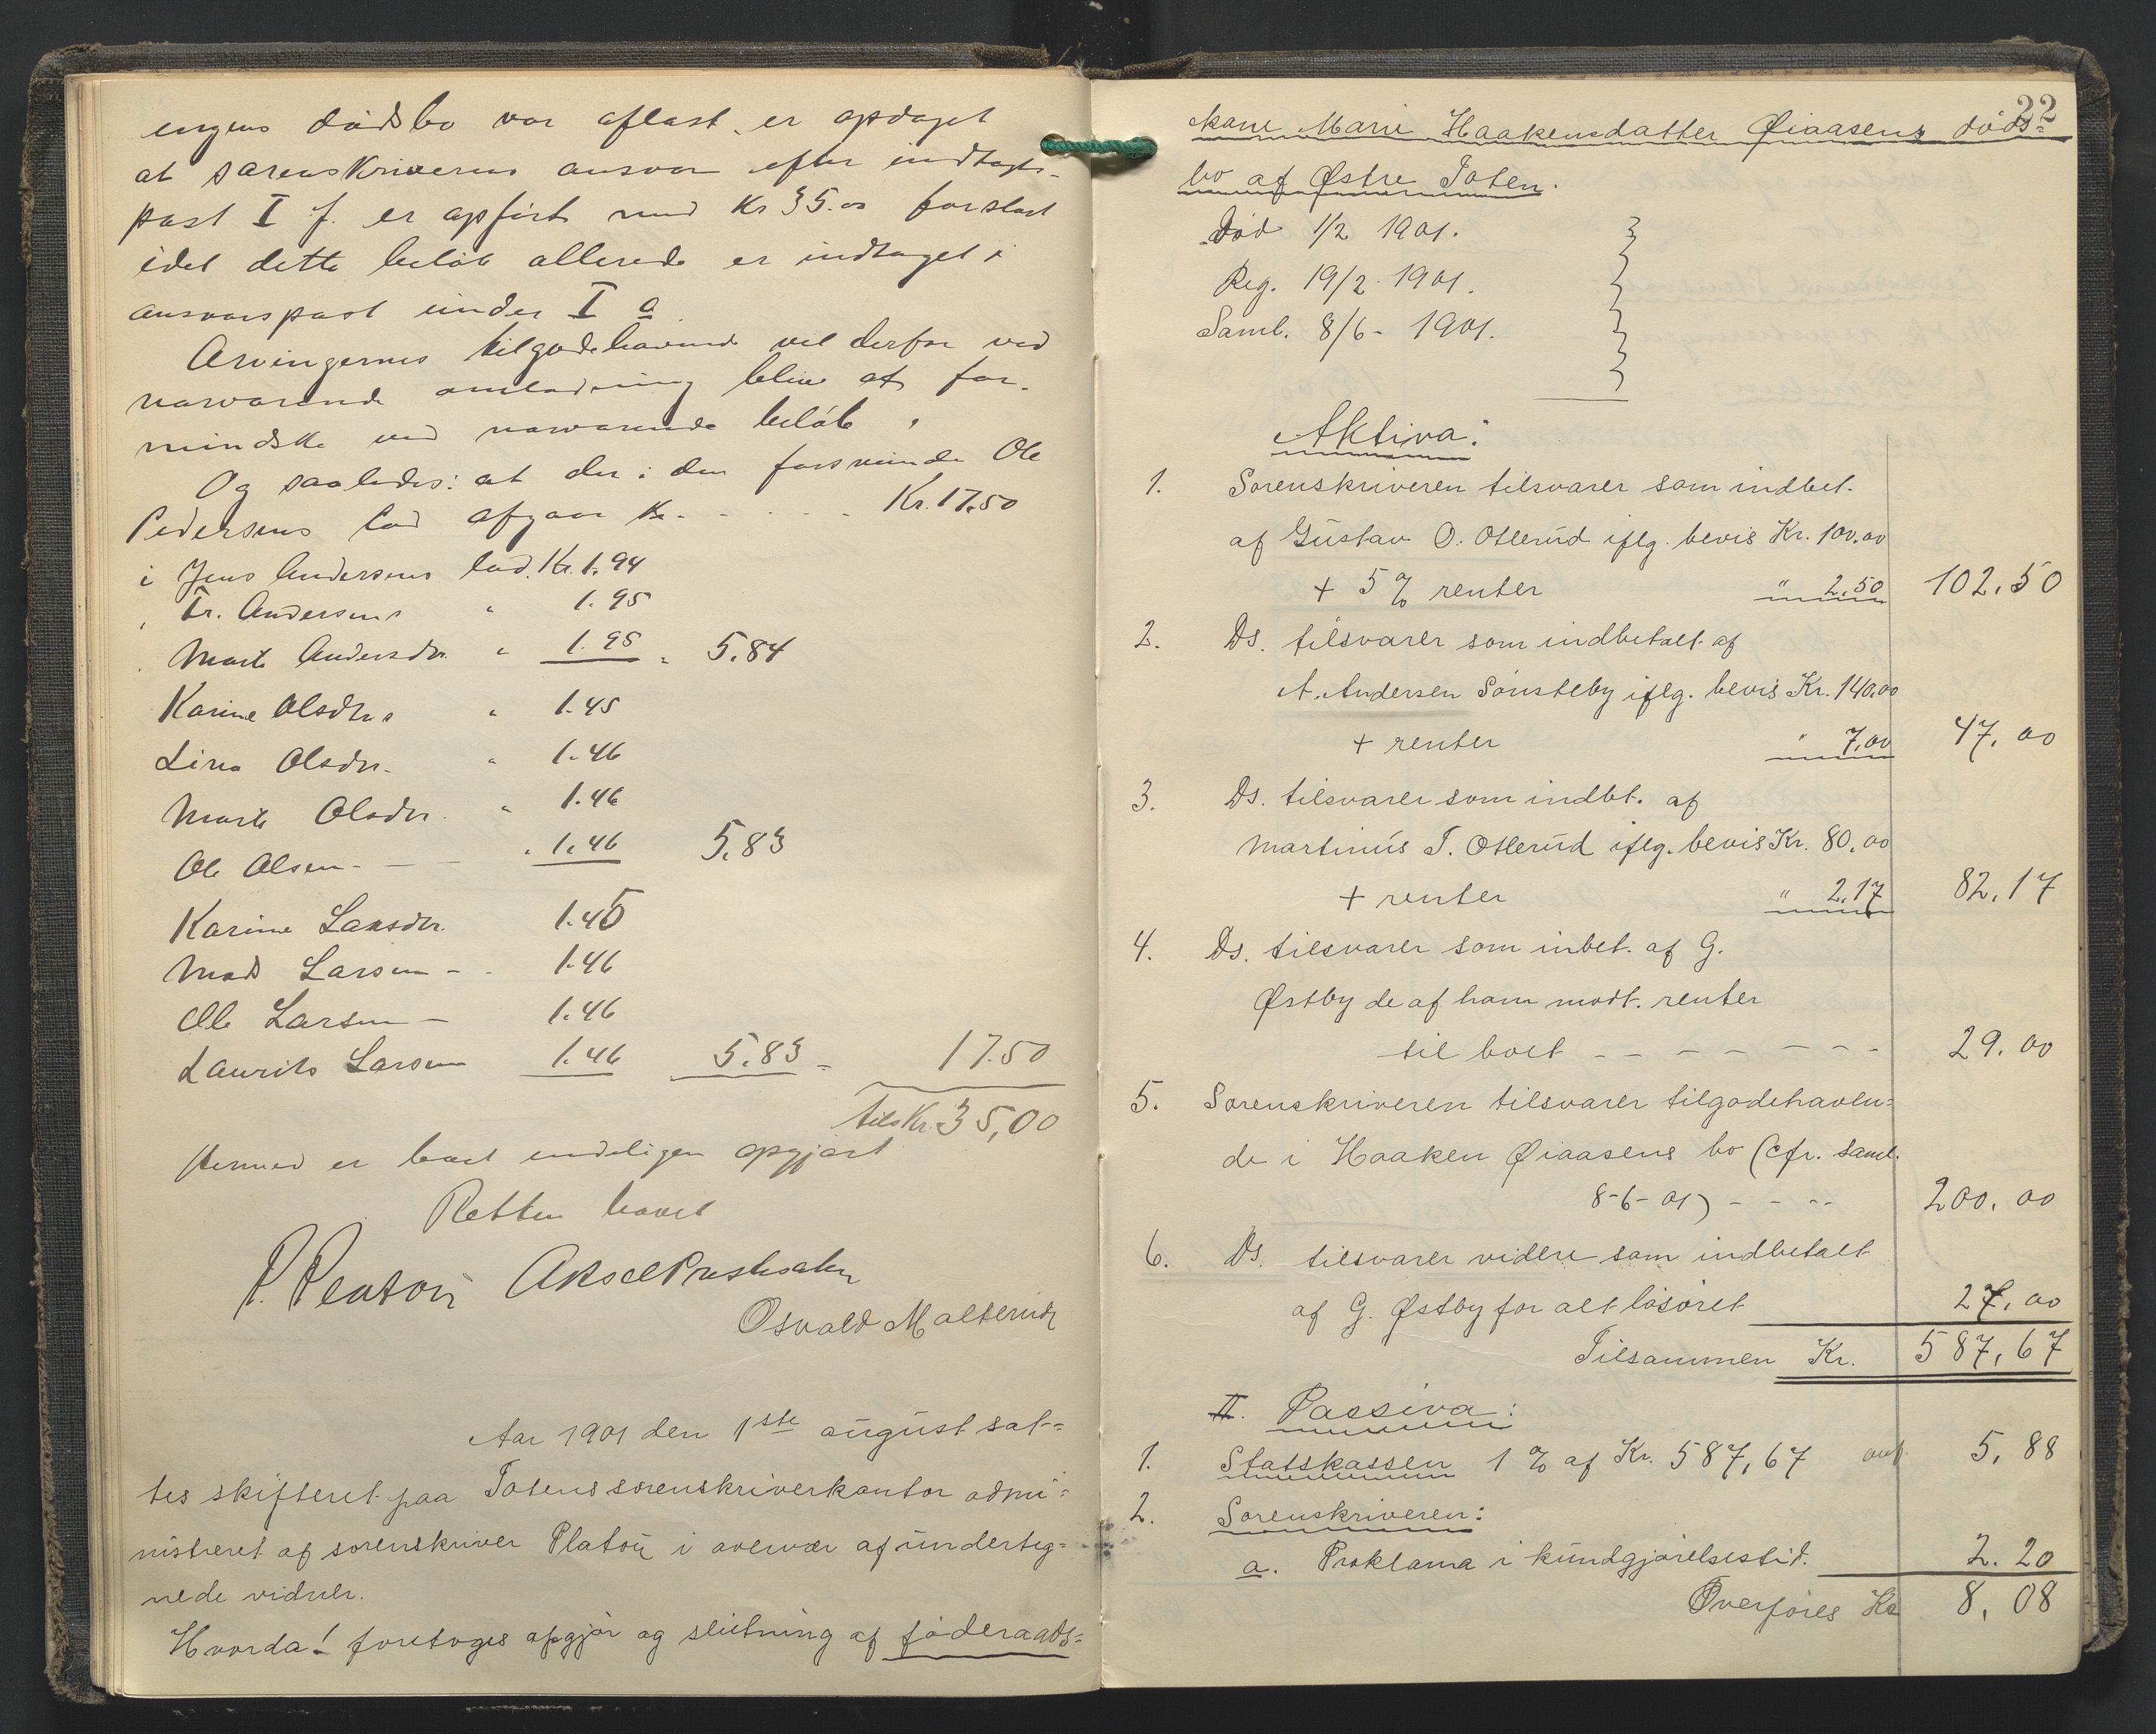 engens dødsbo var aflast er opdaget
at sorenskriverens ansvar efter indtægts-
post I f. er opført med Kr 35.00 for stort
idet dette beløb allerede er indtaget i
ansvarspost under I a
Arvingernes tilgodehavende vil derfor ved
nærværende omlodning blive at for-
mindske med nærværende beløb,
Og saaledes: at der i den forsvundne Ole
Pedersens lod afgaar Kr. - - - - - Kr. 17.50
i Jens Andersens lod. Kr. 1.94
" Fr. Andersens " 1.95
" Marte Andersdr. " 1.95 = 5.84
Karine Olsdtrs " 1.45
Lina Olsdtr. " 1.46
Marte Olsdtr. " 1.46
Ole Olsen - - - " 1.46 5.83
Karine Larsdtr. 1.45
Mads Larsen - - 1.46
Ole Larsen - 1.46
Laurits Larsen 1.46 5.83 = 17.50
tils Kr. 35,00
Hermed er boet endeligen opgjort
Retten hævet
P. Platou Aksel Prestesæter
Osvald Malterud
Aar 1901 den 1ste august sat-
tes skifteret paa Totens sorenskriverkontor admi-
nistreret af sorenskriver Platou i overvær af underteg-
nede vidner.
Hvorda! foretoges opgjør og slutning af føderaads-
22
kone Marie Haakensdatter Øiaasens døds-
bo af Østre Toten.
Død 1/2 1901.
Reg. 19/2 1901.
Saml. 8/6 - 1901.
Aktiva:
1. Sorenskriveren tilsvarer som indbet.
af Gustav O. Ollerud iflg. bevis Kr. 100.00
+ 5 % renter " 2.50 102.50
2. Ds. tilsvarer som indbetalt af
A. Andersen Sønsteby iflg. bevis Kr. 140.00
+ renter " 7,00 47.00
3. Ds. tilsvarer som indbt. af
Martinus T. Ollerud iflg. bevis Kr. 80.00
+ renter " 2.17 82.17
4. Ds. tilsvarer som inbet. af G.
Østby de af ham modt. renter
til boet - - - - - - - 29.00
5. Sorenskriveren tilsvarer tilgodehaven-
de i Haaken Øiaasens bo (cfr. saml.
8-6-01) - - - - 200.00
6. Ds. tilsvarer videre som indbetalt
af G. Østby for alt løsøret 27.00
Tilsammen Kr. 587,67
II. Passiva:
1. Statskassen 1 % af Kr. 587,67 5,88
2. Sorenskriveren:
a. Proklama i kundgjørelsestid. 2.20
Overføres Kr 8,08